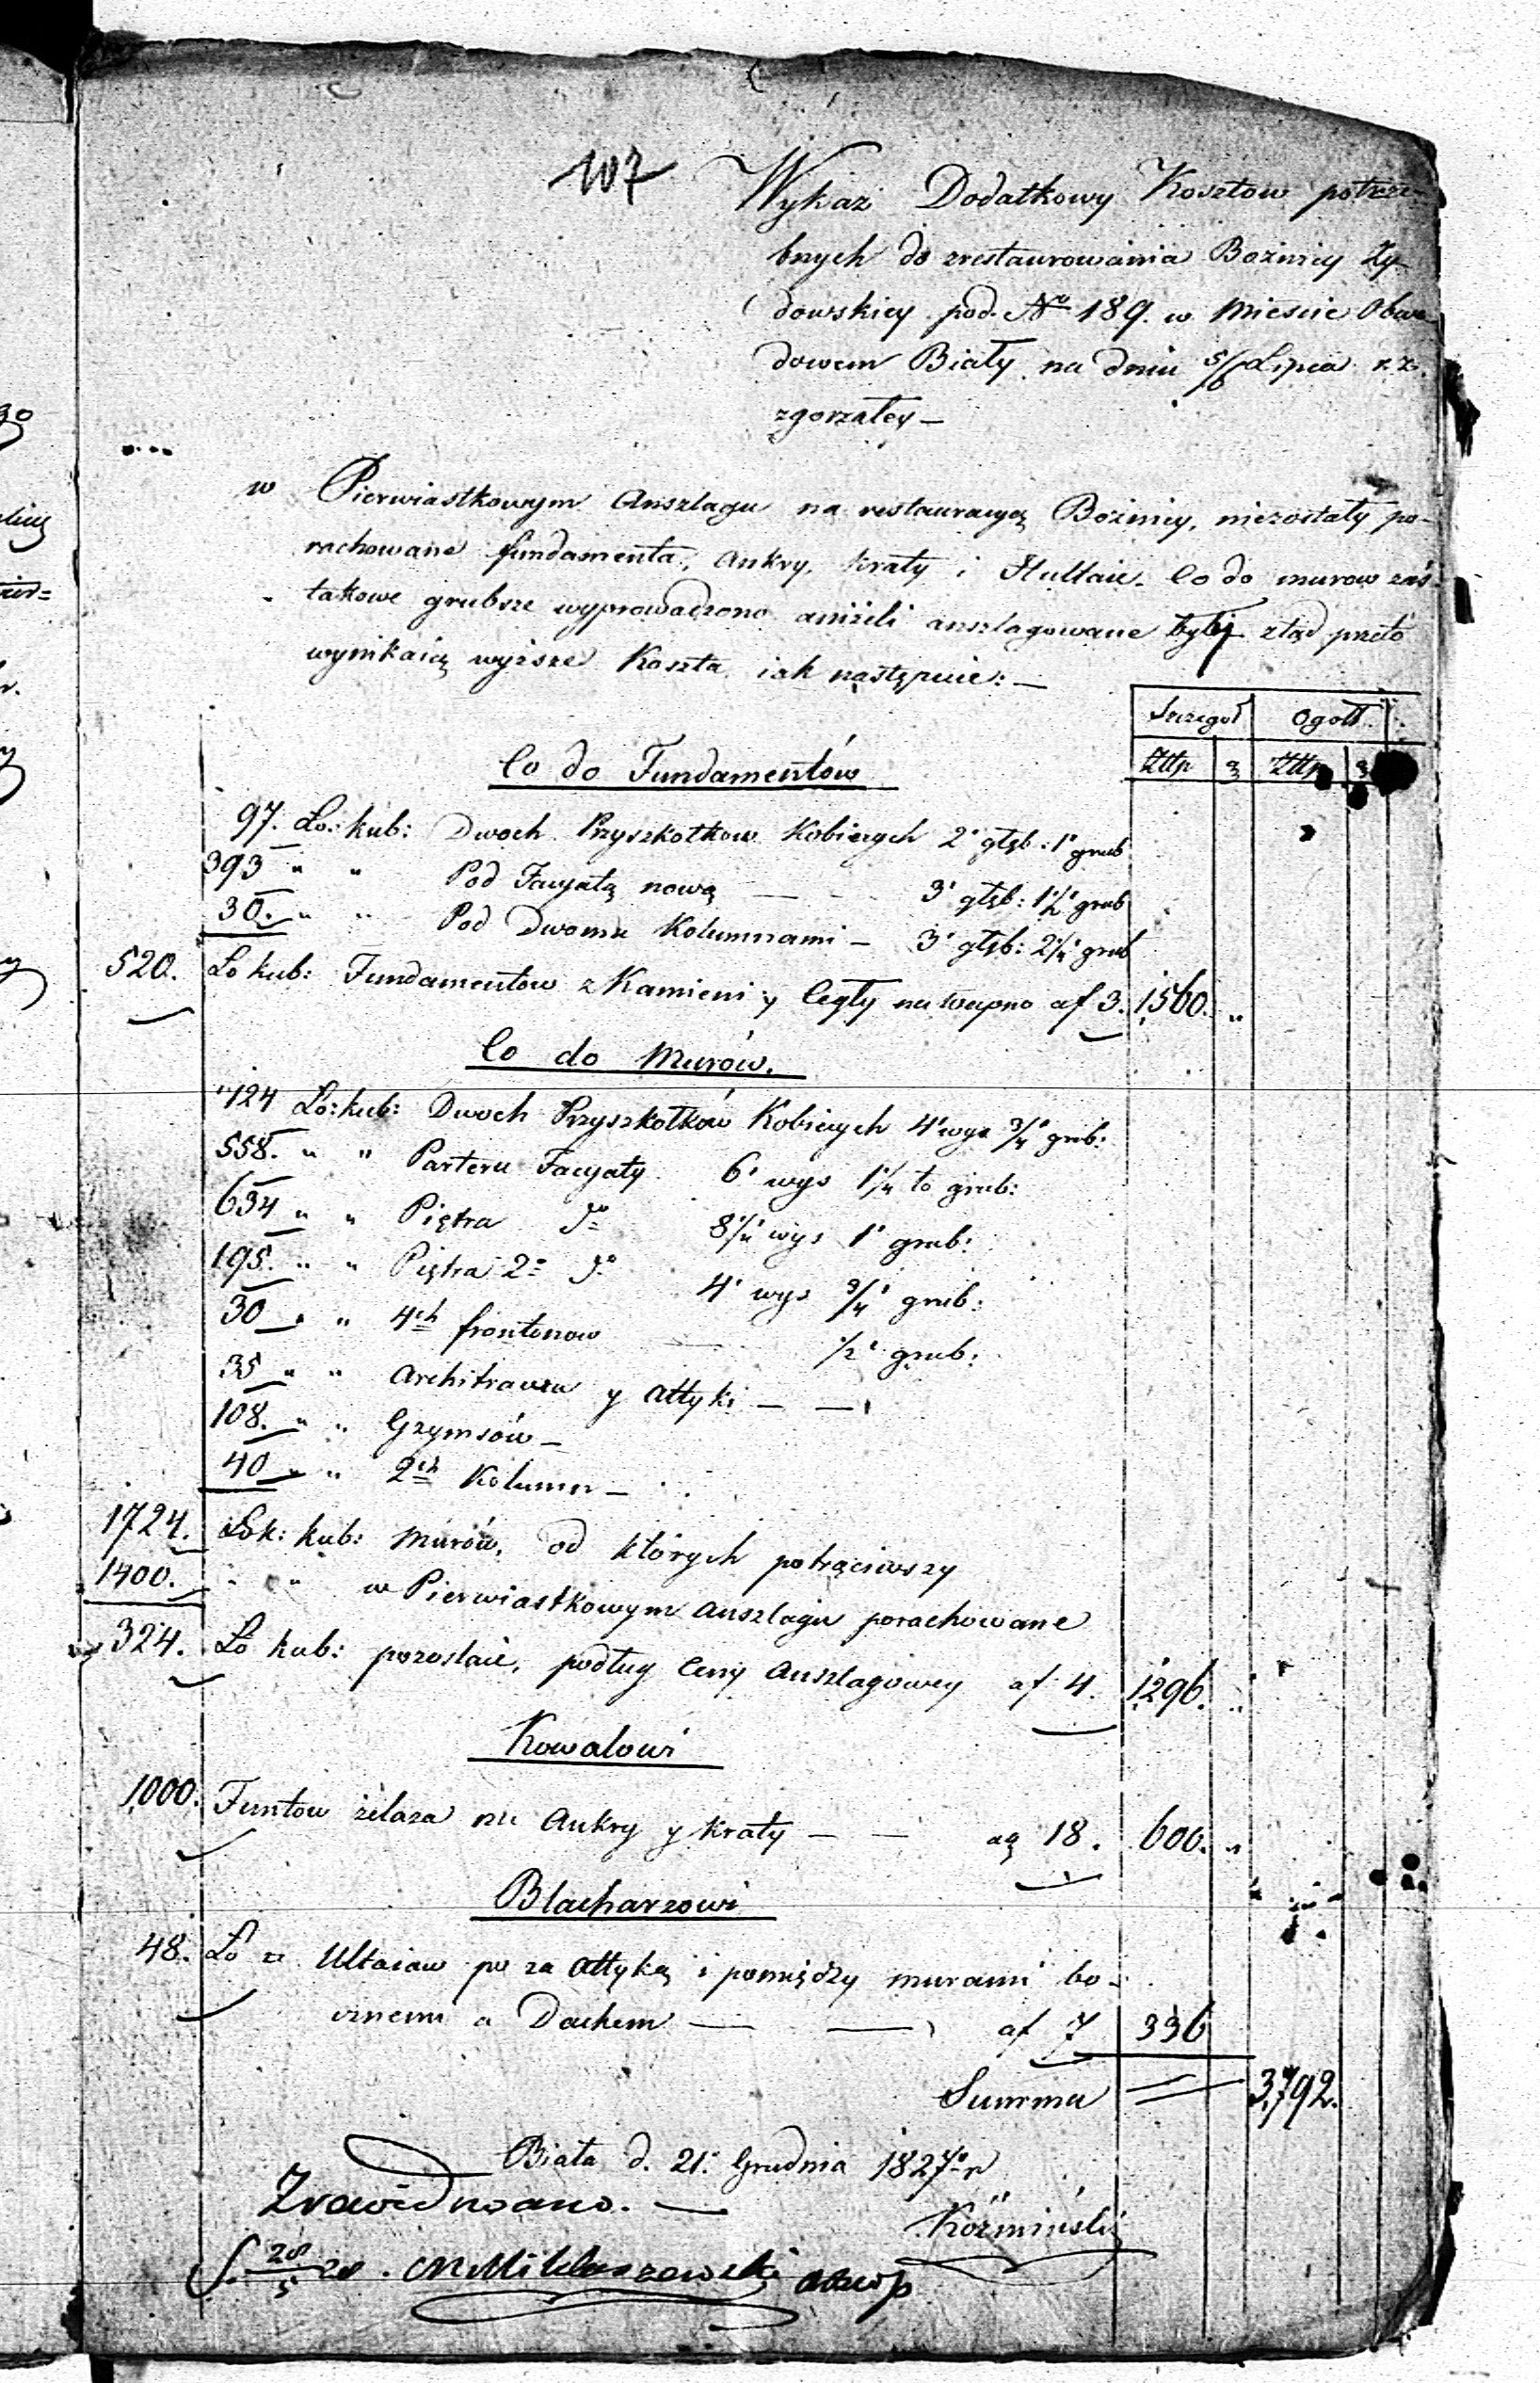 107
Wykaz Dodatkowy Kosztow potrze-
bnych do zrestaurowania Boznicy Zy-
dowskiey pod No 189. w Miescie Obwo-
dowem Biały na dniu 5/6 Lipca r. z.
zgorzałey —
w Pierwiastkowym Anszlagu na restauracyą Bożnicy, niezostały po-
rachowane fundamenta, Ankry, Kraty i Hultaie. Co do murow zaś
takowe grubsze wyprowadzono aniżeli anszlagowane były ztąd przeto
wynikaią wyższe Koszta iak następuie: —
Szczegoł Ogołł
Złłp g Złłp g
Co do Fundamentów
97. Ło: kub: Dwoch Przyszkołkow Kobiecych 2' głęb: 1' grub
393 " " Pod Facyatą nową — 3' głęb: 1½' grub
30. " " Pod Dwoma Kolumnami — 3' głęb: 2¼' grub
520. Ło kub: Fundamentow z Kamieni y Cegły na wapno af 3. 1,560. "
Co do Murów.
124 Ło: kub: Dwoch Przyszkołków Kobiecych 4' wys ¾' grub:
558. " " Parteru Facyaty 6' wys 1¼ to grub:
634 " " Piętra do 8¼' wys 1' grub:
195. " " Piętra 2o do 4' wys ¾' grub:
30 " " 4ch frontonow — ½' grub:
35 " " Architrawu y Attyki — —
108. " " Gzymsów —
40 " " 2ch Kolumn —
1724. Łok: kub: Murów, od których potrąciwszy
1400. " " w Pierwiastkowym anszlagu porachowane
324. Ło kub: pozostaie, podług Ceny Anszlagowey af 4. 1,296. "
Kowalowi
1,000. Funtow żelaza na Ankry y Kraty — — ag 18. 600. "
Blacharzowi
48. Ło □ Ultaiow po za Attyką i pomiędzy murami bo-
cznemi a Dachem — — af 7 336
Summa 3,792.
Biała d. 21. Grudnia 1827o r
Zrewidowano. —
Koźmiński
28/5 28. Mikłaszewski